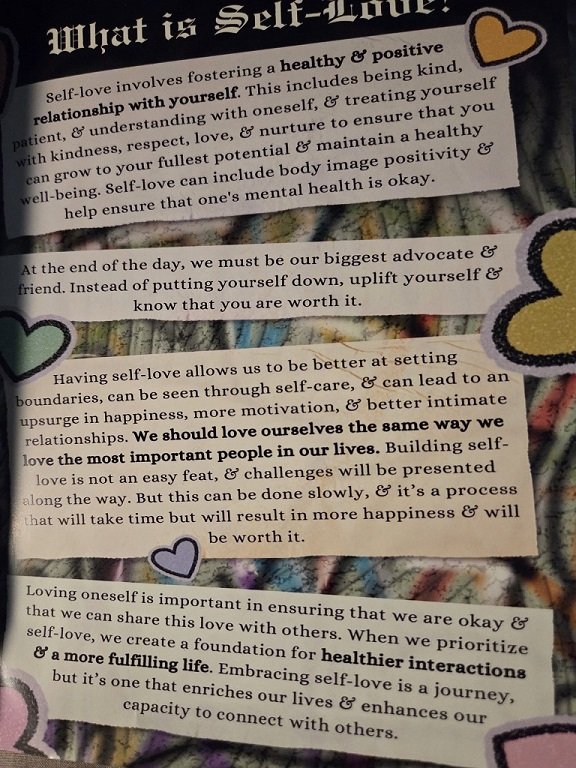 What is Self-Love?
Self-love involves fostering a healthy & positive
relationship with yourself. This includes being kind,
patient, & understanding with oneself, & treating yourself
with kindness, respect, love, & nurture to ensure that you
can grow to your fullest potential & maintain a healthy
well-being. Self-love can include body image positivity &
help ensure that one's mental health is okay.
At the end of the day, we must be our biggest advocate &
friend. Instead of putting yourself down, uplift yourself &
know that you are worth it.
Having self-love allows us to be better at setting
boundaries, can be seen through self-care, & can lead to an
upsurge in happiness, more motivation, & better intimate
relationships. We should love ourselves the same way we
love the most important people in our lives. Building self-
love is not an easy feat, & challenges will be presented
along the way. But this can be done slowly, & it's a process
that will take time but will result in more happiness & will
be worth it.
Loving oneself is important in ensuring that we are okay &
that we can share this love with others. When we prioritize
self-love, we create a foundation for healthier interactions
& a more fulfilling life. Embracing self-love is a journey,
but it's one that enriches our lives & enhances our
capacity to connect with others.